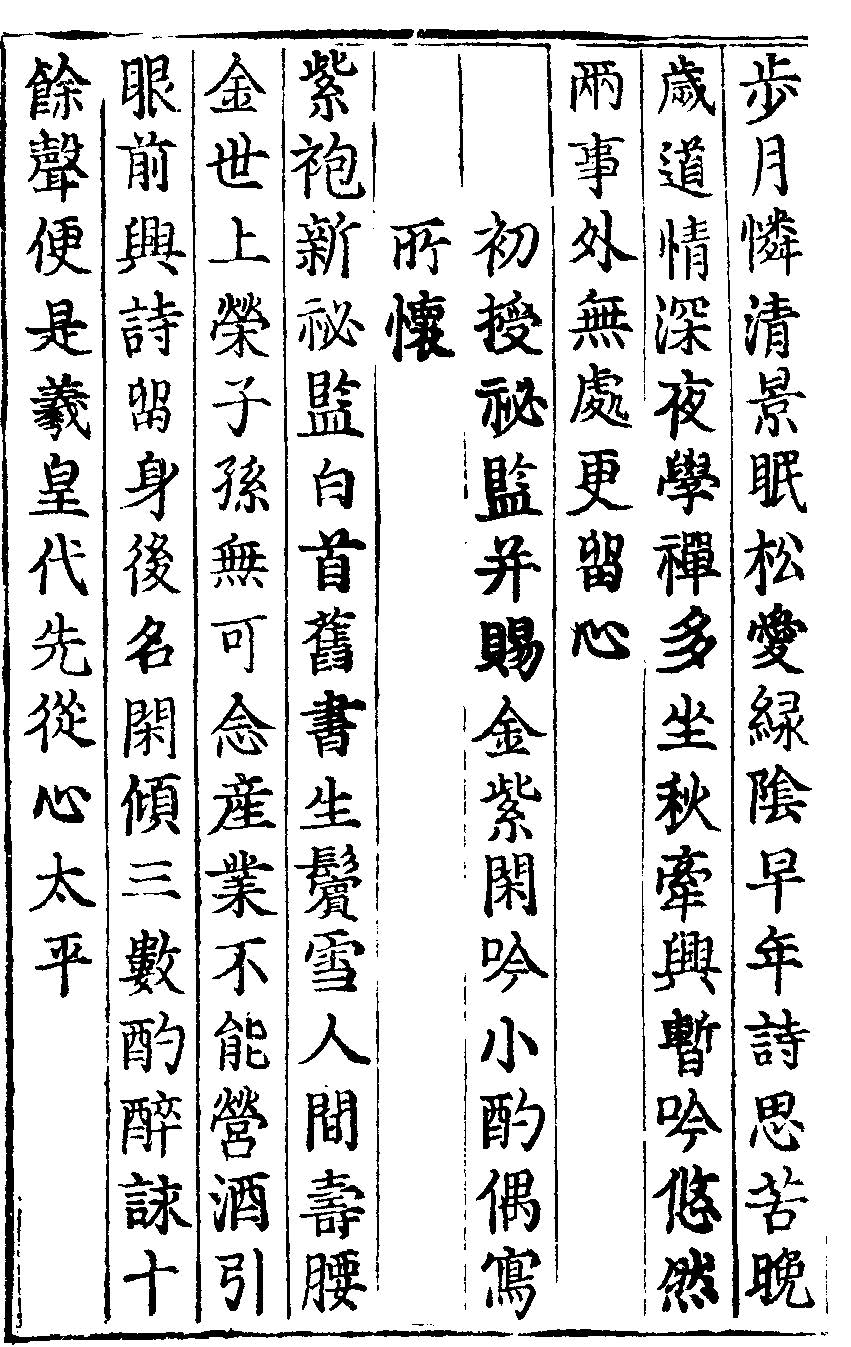 步月憐清景眠松愛緑陰早年詩思苦晚
歲道情深夜學禪多坐秋牽興暫吟悠然
兩事外無處更留心
初授祕監并賜金紫閑吟小酌偶寫
所懷
紫袍新祕監白首舊書生鬢雪人間壽腰
金世上榮子孫無可念産業不能營酒引
眼前興詩留身後名閑傾三數酌醉詠十
餘聲便是羲皇代先從心太平